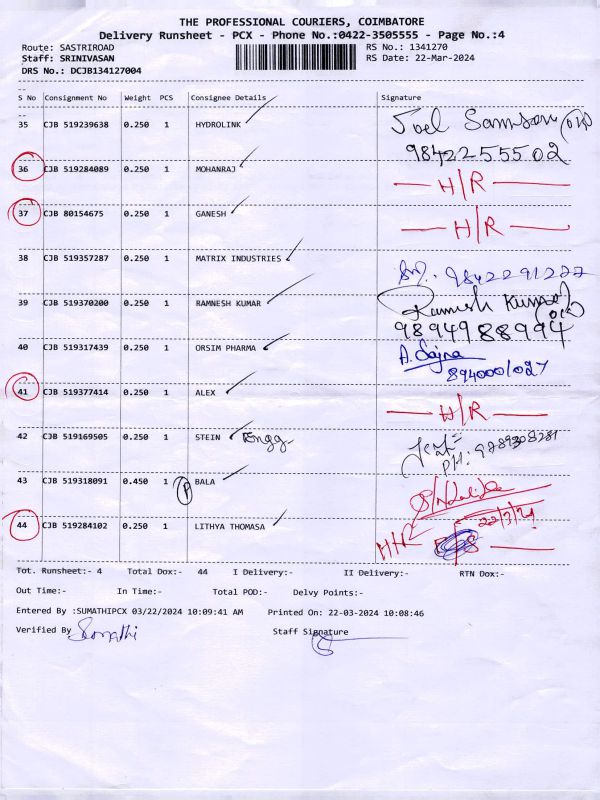 THE PROFESSIONAL COURIERS, COIMBATORE
Delivery Runsheet - PCX - Phone No.:0422-3505555 - Page No.:4
Route: SASTRIROAD RS No.: 1341270
Staff: SRINIVASAN RS Date: 22-Mar-2024
DRS No.: DCJB134127004
S No Consignment No Weight PCS Consignee Details Signature
35 CJB 519239638 0.250 1 HYDROLINK Joel Samson
9842255502
36 CJB 519284089 0.250 1 MOHANRAJ H/R
37 CJB 80154675 0.250 1 GANESH H/R
38 CJB 519357287 0.250 1 MATRIX INDUSTRIES 9842291277
39 CJB 519370200 0.250 1 RAMNESH KUMAR Ramesh Kumar
9894988994
40 CJB 519317439 0.250 1 ORSIM PHARMA A. Sajna
8940001027
41 CJB 519377414 0.250 1 ALEX H/R
42 CJB 519169505 0.250 1 STEIN Engg
PH:
43 CJB 519318091 0.450 1 P BALA
22/3/24
44 CJB 519284102 0.250 1 LITHYA THOMASA H/R
Tot. Runsheet:- 4 Total Dox:- 44 I Delivery:- II Delivery:- RTN Dox:-
Out Time:- In Time:- Total POD:- Delvy Points:-
Entered By :SUMATHIPCX 03/22/2024 10:09:41 AM Printed On: 22-03-2024 10:08:46
Verified By Sumathi Staff Signature